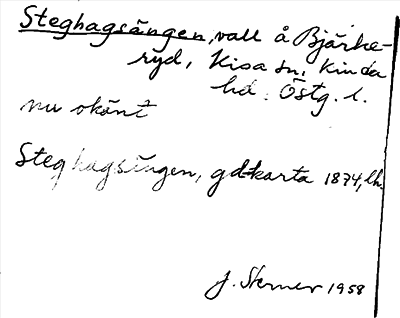 Steghagsängen, vall å Bjärke-
ryd, Kisa sn, Kinda
hd. Östg. l.
nu okänt
Steghagsängen, gdkarta 1874, lh.
J. Sterner 1958